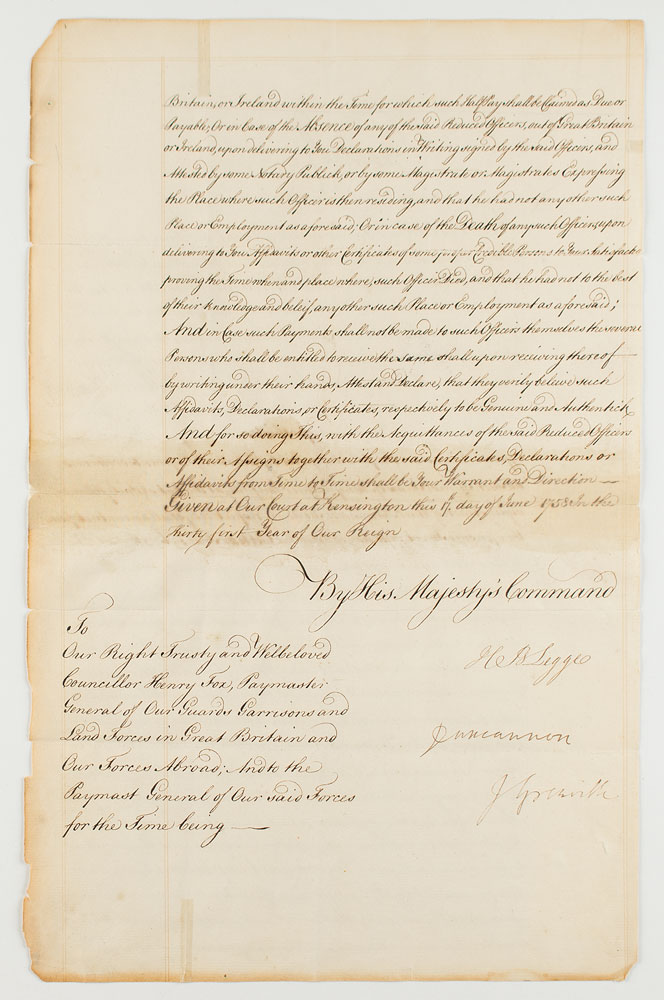 Britain, or Ireland within the Time for which such Half Pay shall be Claimed as Due or
Payable; Or in Case of the Absence of any of the said Reduced Officers, out of Great Britain
or Ireland, upon delivering to You Declarations in Writing signed by the said Officers, and
Attested by some Notary Publick, or by some Magistrate or Magistrates Expressing
the Place where such Officer is then residing, and that he had not any other such
Place or Employment as aforesaid; Or in case of the Death of any such Officers upon
delivering to You Affidavits or other Certificates of some proper Credible Persons to Your Satisfactio
proving the Time when and place where, such Officer Died, and that he had not to the best
of their knowledge and beleif, any other such Place or Employment as aforesaid;
And in Case such Payments shall not be made to such Officers themselves the several
Persons who shall be entitled to receive the same shall upon reciving there of
by writing under their hands, Attest and Declare, that they verily beleive such
Affidavits, Declarations, or Certificates, respectively to be Genuine and Authentick
And for so doing This, with the Acquittances of the said Reduced Officers
or of their Assigns together with the said Certificates, Declarations or
Affidavits from Time to Time shall be Your Warrant and Direction —
Given at Our Court at Kensington this 17. day of June 1758 In the
thirty first Year of Our Reign
By His Majesty's Command
To
Our Right Trusty and Welbeloved
Councillor Henry Fox, Paymaster
General of Our Guards Garrisons and
Land Forces in Great Britain and
Our Forces Abroad; And to the
Paymast General of Our said Forces
for the Time being —
H B Legge
Duncannon
J Grenville